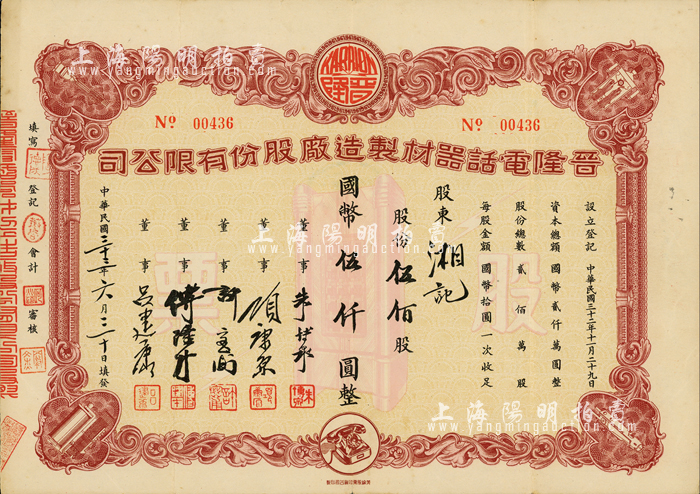 上海陽明拍賣
www.yangmingauction.com
上海陽明拍賣
www.yangmingauction.com
No 00436
No 00436
晉隆電話器材製造廠股份有限公司
設立登記 中華民國三十二年十一月二十九日
資本總額 國幣貳仟萬圓整
股份總數 貳佰萬股
每股金額 國幣拾圓一次收足
股東 湘記
股份 伍佰 股
國幣 伍仟 圓整
董事
董事
董事
董事
董事
中華民國三十三年六月三十日填發
填寫 登記 會計 審核
股票
上海陽明拍賣
www.yangmingauction.com
上海陽明拍賣
www.yangmingauction.com